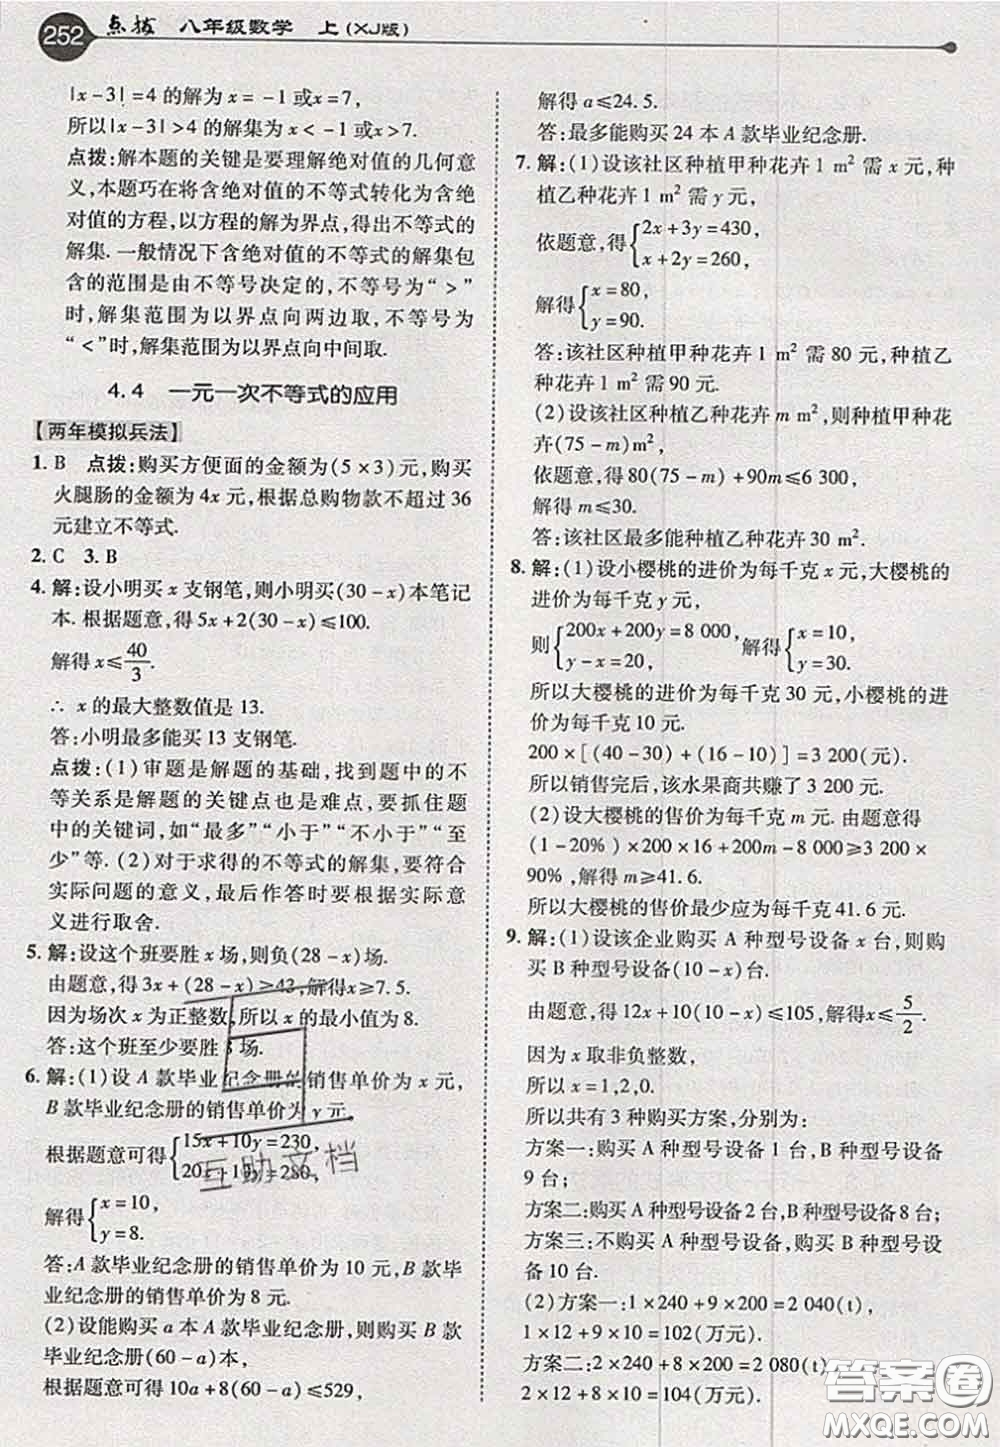 252 点拨 八年级数学 上(XJ版)
|x-3|=4的解为x=-1或x=7,
所以|x-3|>4的解集为x<-1或x>7.
点拨:解本题的关键是要理解绝对值的几何意
义,本题巧在将含绝对值的不等式转化为含绝
对值的方程,以方程的解为界点,得出不等式的
解集.一般情况下含绝对值的不等式的解集包
含的范围是由不等号决定的,不等号为“>”
时,解集范围为以界点向两边取,不等号为
“<”时,解集范围为以界点向中间取.
4.4 一元一次不等式的应用
【两年模拟兵法】
1. B 点拨:购买方便面的金额为(5×3)元,购买
火腿肠的金额为4x元,根据总购物款不超过36
元建立不等式.
2. C 3. B
4. 解:设小明买x支钢笔,则小明买(30-x)本笔记
本.根据题意,得5x+2(30-x)≤100.
解得x≤40/3.
∴ x的最大整数值是13.
答:小明最多能买13支钢笔.
点拨:(1)审题是解题的基础,找到题中的不
等关系是解题的关键点也是难点,要抓住题
中的关键词,如“最多”“小于”“不小于”“至
少”等.(2)对于求得的不等式的解集,要符合
实际问题的意义,最后作答时要根据实际意
义进行取舍.
5. 解:设这个班要胜x场,则负(28-x)场.
由题意,得3x+(28-x)≥43,解得x≥7.5.
因为场次x为正整数,所以x的最小值为8.
答:这个班至少要胜8场.
6. 解:(1)设A款毕业纪念册的销售单价为x元,
B款毕业纪念册的销售单价为y元,
根据题意可得{15x+10y=230,
20x+10y=280,
解得{x=10,
y=8.
答:A款毕业纪念册的销售单价为10元,B款
毕业纪念册的销售单价为8元.
(2)设能购买a本A款毕业纪念册,则购买B款
毕业纪念册(60-a)本,
根据题意可得10a+8(60-a)≤529,
解得a≤24.5.
答:最多能购买24本A款毕业纪念册.
7. 解:(1)设该社区种植甲种花卉1 m²需x元,种
植乙种花卉1 m²需y元,
依题意,得{2x+3y=430,
x+2y=260,
解得{x=80,
y=90.
答:该社区种植甲种花卉1 m²需80元,种植乙
种花卉1 m²需90元.
(2)设该社区种植乙种花卉m m²,则种植甲种花
卉(75-m)m².
依题意,得80(75-m)+90m≤6 300,
解得m≤30.
答:该社区最多能种植乙种花卉30 m².
8. 解:(1)设小樱桃的进价为每千克x元,大樱桃的
进价为每千克y元,
则{200x+200y=8 000,
y-x=20,
解得{x=10,
y=30.
所以大樱桃的进价为每千克30元,小樱桃的进
价为每千克10元.
200×[(40-30)+(16-10)]=3 200(元).
所以销售完后,该水果商共赚了3 200元.
(2)设大樱桃的售价为每千克m元.由题意得
(1-20%)×200×16+200m-8 000≥3 200×
90%,解得m≥41.6.
所以大樱桃的售价最少应为每千克41.6元.
9. 解:(1)设该企业购买A种型号设备x台,则购
买B种型号设备(10-x)台.
由题意,得12x+10(10-x)≤105,解得x≤5/2.
因为x取非负整数,
所以x=1,2,0.
所以共有3种购买方案,分别为:
方案一:购买A种型号设备1台,B种型号设备
9台;
方案二:购买A种型号设备2台,B种型号设备8台;
方案三:不购买A种型号设备,购买B种型号设
备10台.
(2)方案一:1×240+9×200=2 040(t),
1×12+9×10=102(万元).
方案二:2×240+8×200=2 080(t)
2×12+8×10=104(万元).
互助文档
答案圈
MXQE.COM